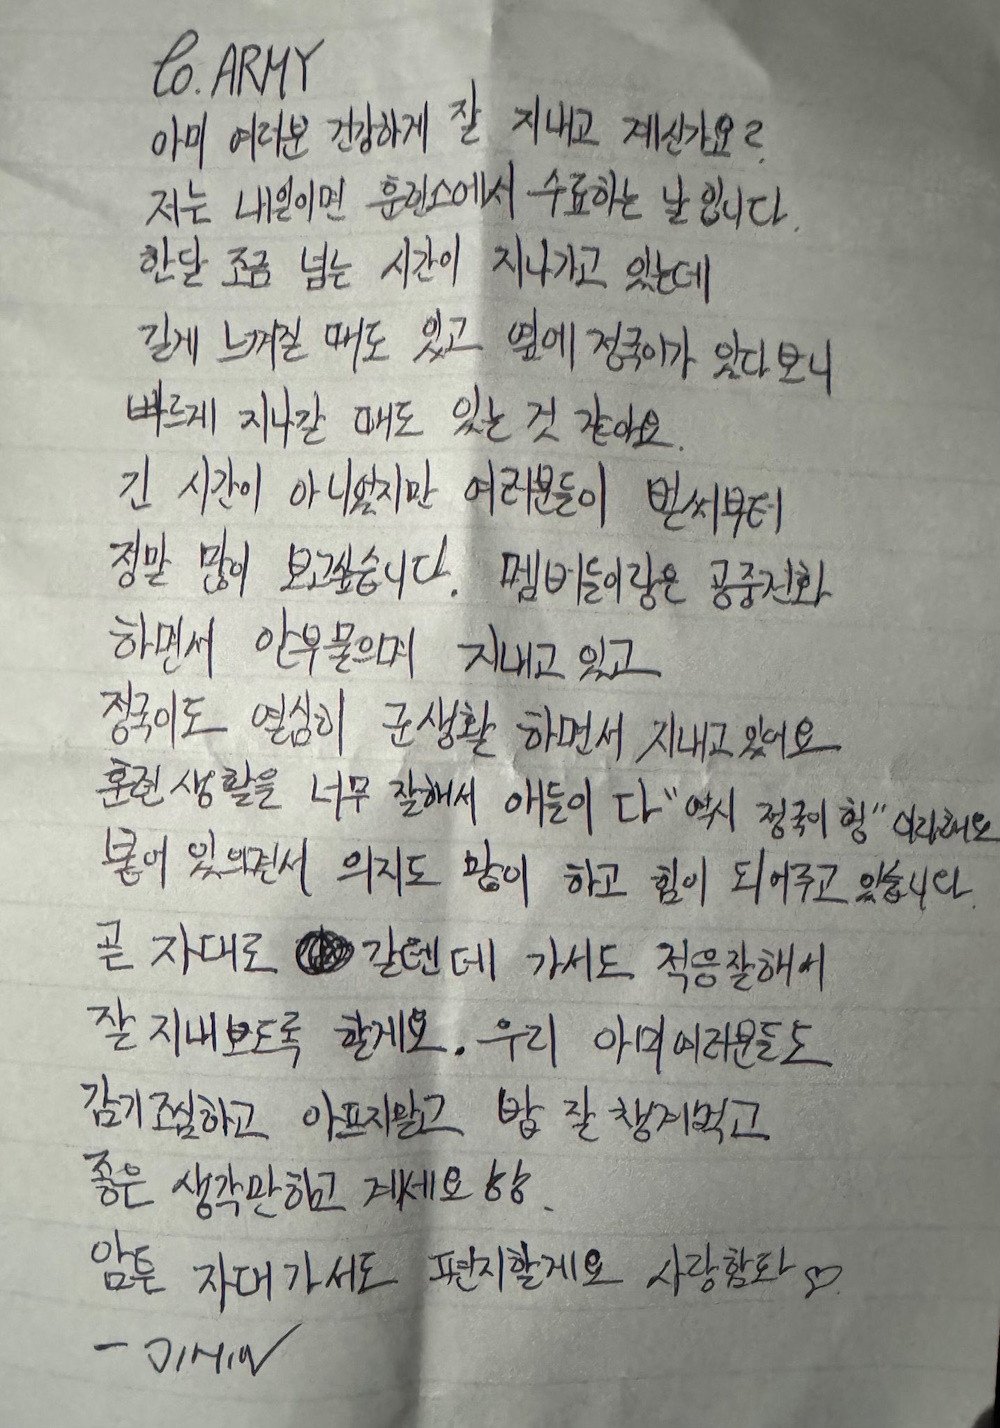 To. ARMY
아미 여러분 건강하게 잘 지내고 계신가요?
저는 내일이면 훈련소에서 수료하는 날 입니다.
한달 조금 넘는 시간이 지나가고 있는데
길게 느껴질 때도 있고 옆에 정국이가 있다보니
빠르게 지나갈 때도 있는 것 같아요.
긴 시간이 아니었지만 여러분들이 벌써부터
정말 많이 보고싶습니다. 멤버들이랑은 공중전화
하면서 안부물으며 지내고있고
정국이도 열심히 군생활 하면서 지내고있어요
훈련생활을 너무 잘해서 애들이 다 "역시 정국이 형" 이라해요
붙어 있으면서 의지도 많이 하고 힘이 되어주고있습니다.
곧 자대로 갈텐데 가서도 적응잘해서
잘 지내보도록 할게요. 우리 아미여러분들도
감기조심하고 아프지말고 밥 잘 챙겨먹고
좋은 생각만하고 계세요
암튼 자대가서도 편지할게요 사랑함돠♡.
- JIMIN